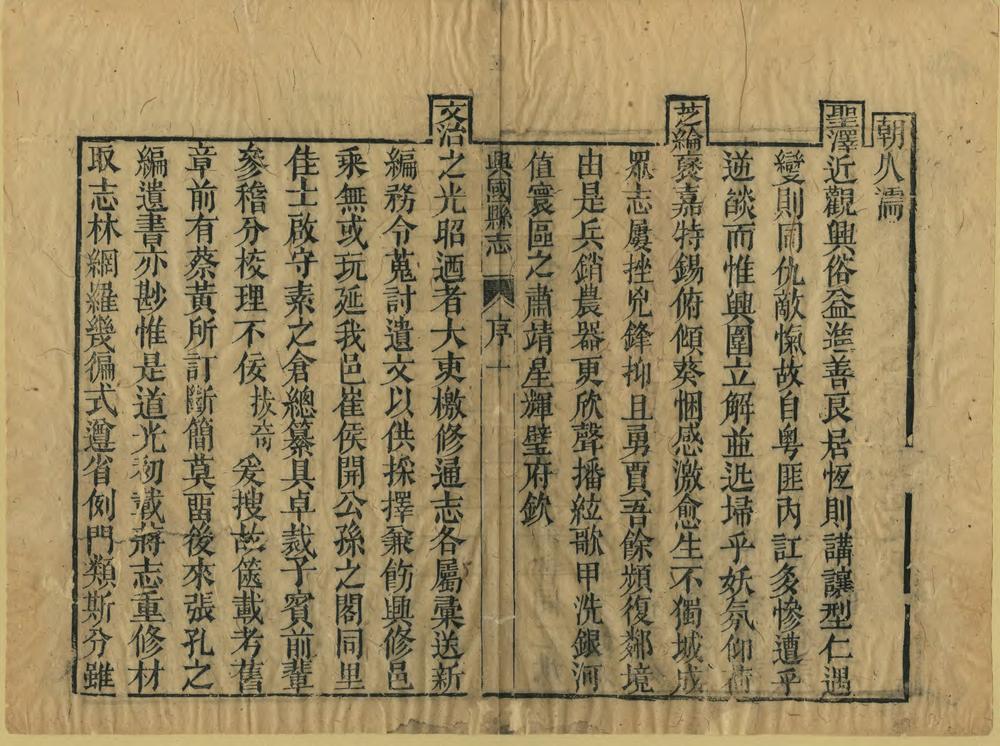 朝久濡
聖澤近觀興俗益進善良居恆則講讓型仁遇
變則同仇敵愾故自粤匪內訌灸慘遭乎
逆燄而惟興圍立解並迅埽乎妖氛仰荷
芝綸褒嘉特錫俯傾葵悃感激愈生不獨城成
眾志屢挫兇鋒抑且勇賈吾餘頻復鄰境
由是兵銷農器更欣聲播絃歌甲洗銀河
值寰區之肅靖星輝璧府欽
興國縣志 序 十
文治之光昭迺者大吏檄修通志各屬彙送新
編務令蒐討遺文以供採擇兼飭興修邑
乘無或玩延我邑崔侯開公孫之閣同里
佳士啟守素之倉總纂具卓裁予賓前輩
參稽分校理不佞拔奇爰搜故篋載考舊
章前有蔡黃所訂斷簡莫畱後來張孔之
編遺書亦尠惟是道光初載蔣志重修材
取志林網羅幾徧式遵省例門類斯分雖